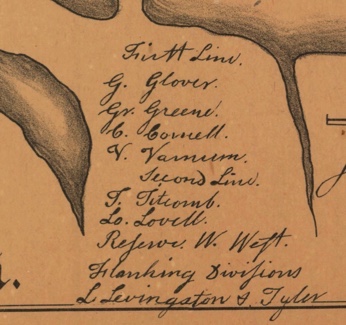 First Line.
G. Glover.
Gr. Greene.
C. Cornell.
V. Varnum.
Second Line.
T. Titcomb.
Lo. Lovell.
Reserve. W. West.
Flanking Divisions
L Levingston & Tyler